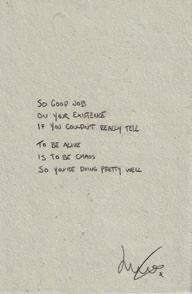 SO GOOD JOB
ON YOUR EXISTENCE
IF YOU COULDN'T REALLY TELL
TO BE ALIVE
IS TO BE CHAOS
SO YOU'RE DOING PRETTY WELL